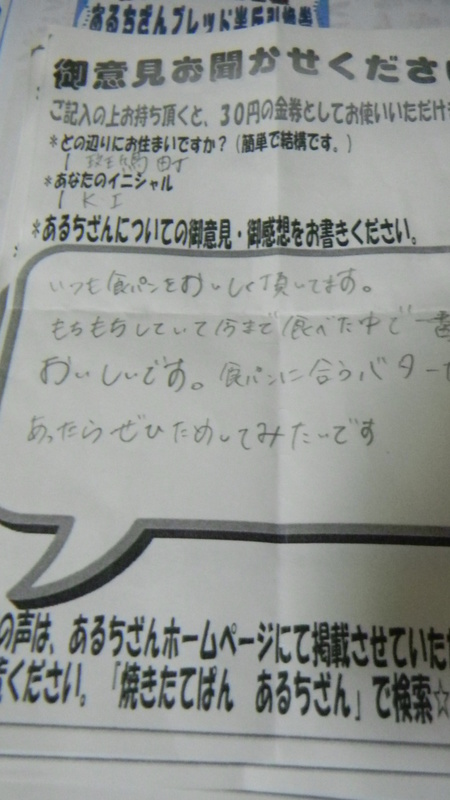 あるちざんブレッド半斤引換券
御意見お聞かせくださ
ご記入の上お持ち頂くと、30円の金券としてお使いいただけ
*どの辺りにお住まいですか？（簡単で結構です。）
町
*あなたのイニシャル
K I
*あるちざんについての御意見・御感想をお書きください。
いつも食パンをおいしく頂いてます。
もちもちしていて今まで食べた中で一番
おいしいです。食パンに合うバターが
あったらぜひためしてみたいです
の声は、あるちざんホームページにて掲載させていただ
ください。「焼きたてぱん　あるちざん」で検索☆